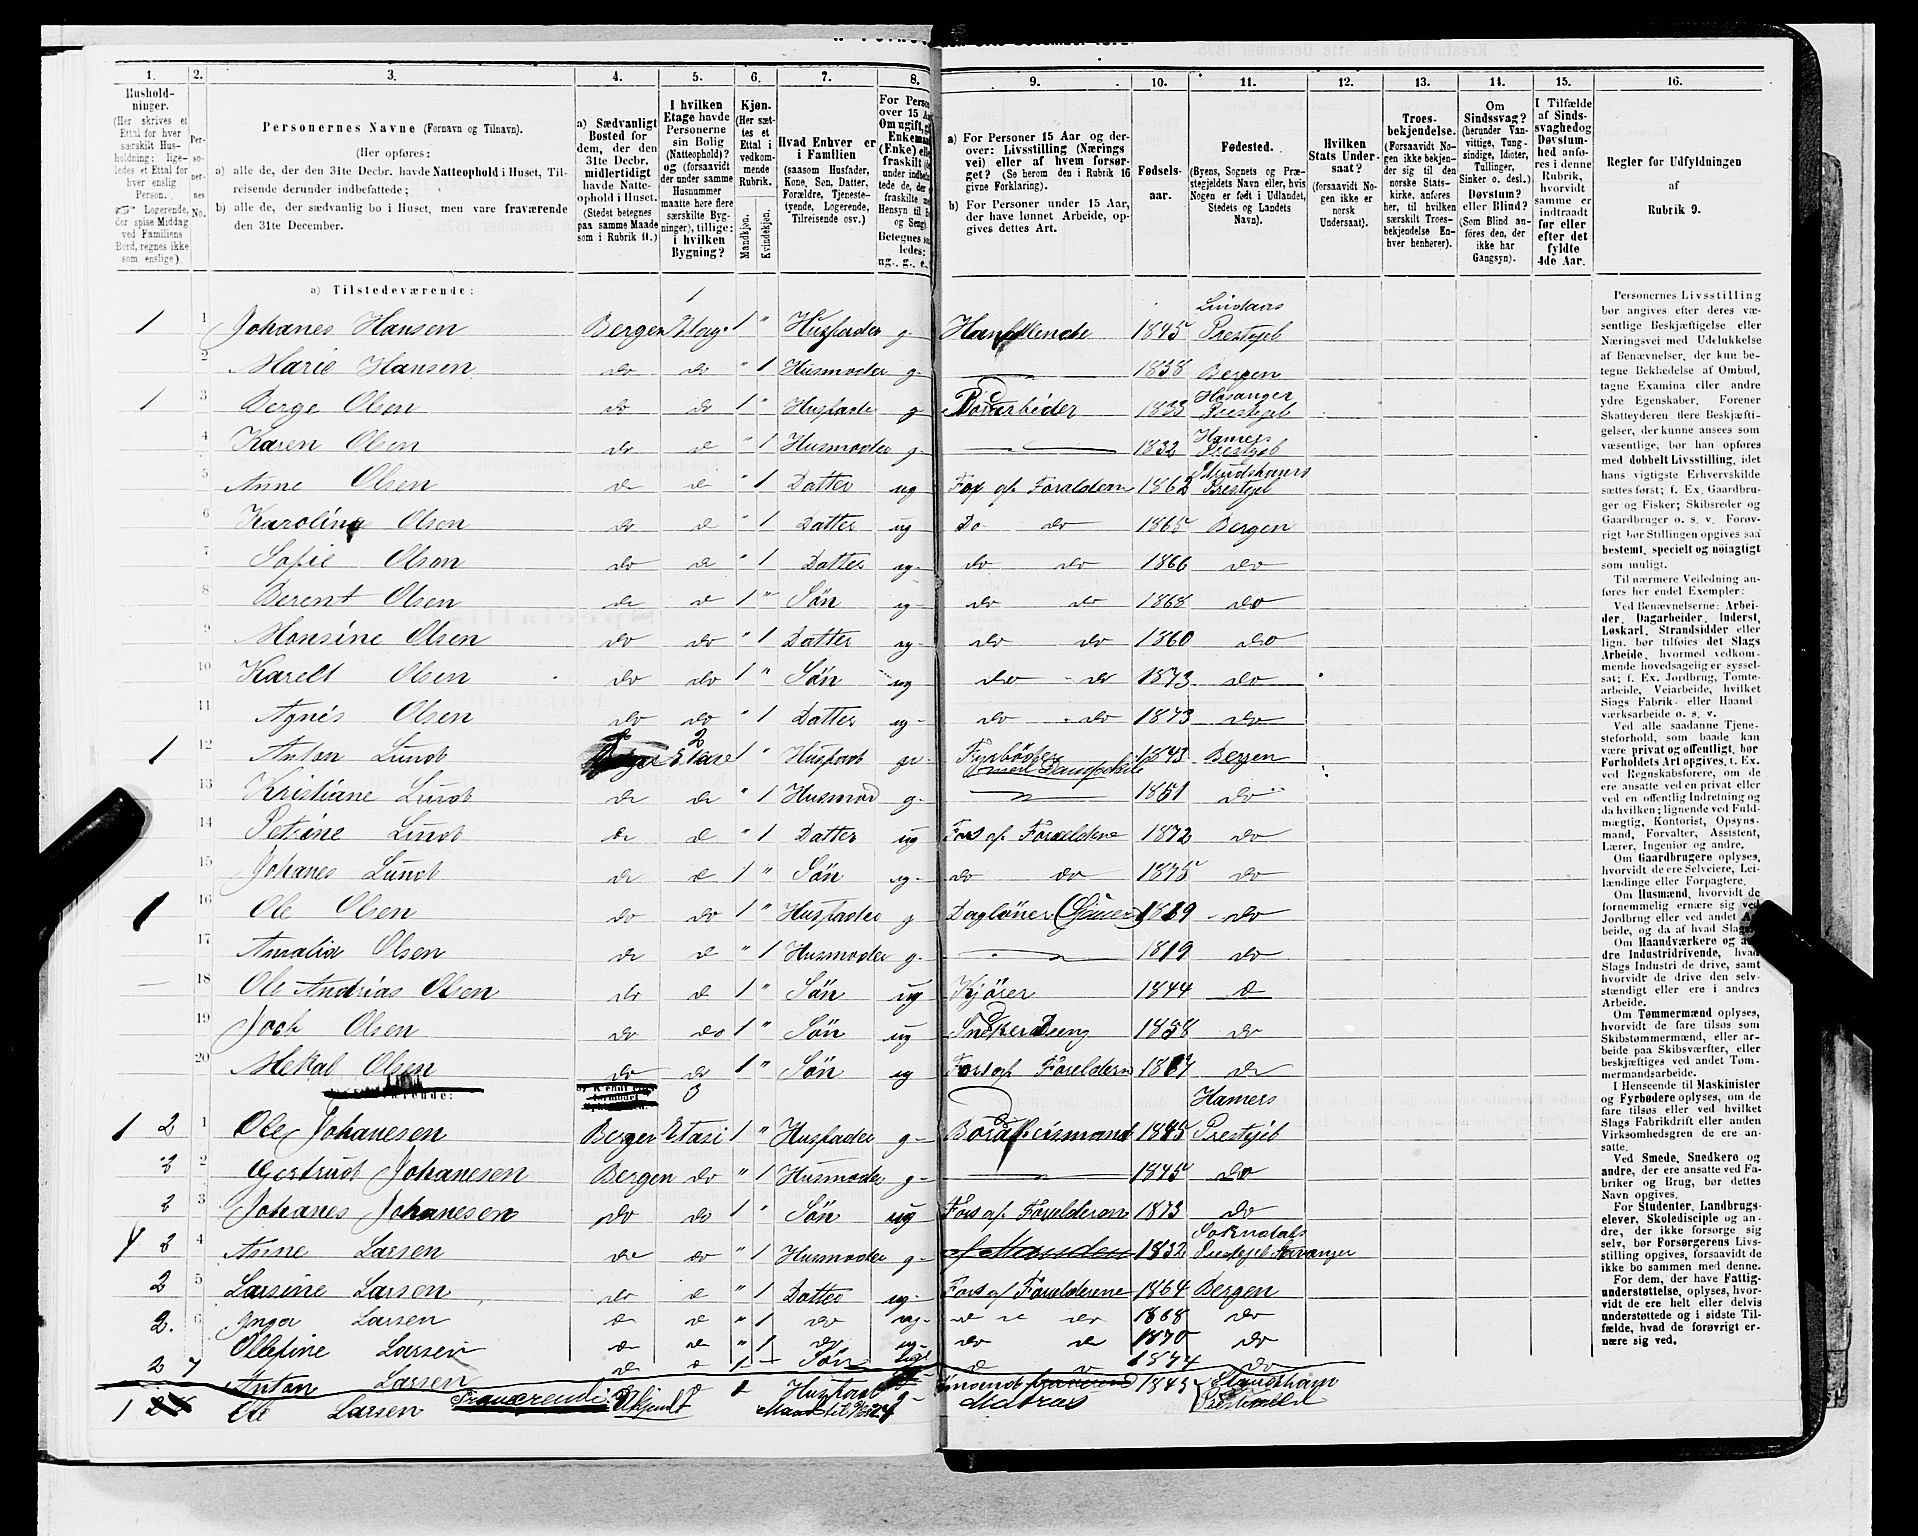 1. 2. 3. 4. 5. 6. 7. 8. 9. 10. 11. 12. 13. 14. 15. 16.
Husholdninger. (Her skrives et Ettal for hver særskilt Husholdning; ligeledes et Ettal for hver enslig Person. Logerende, der spise Middag ved Familiens Bord, regnes ikke som enslige).
Personernes No.
Personernes Navne (Fornavn og Tilnavn).
(Her opføres:
a) alle de, der den 31te Decbr. havde Natteophold i Huset, Tilreisende derunder indbefattede;
b) alle de, der sædvanlig bo i Huset, men vare fraværende den 31te December.
a) Sædvanligt Bosted for dem, der den 31te Decbr. midlertidigt havde Natteophold i Huset. (Stedet betegnes paa samme Maade som i Rubrik 11.)
I hvilken Etage havde Personerne sin Bolig (Natteophold)? og (forsaavidt der under samme Husnummer maatte høre flere særskilte Bygninger), tillige: i hvilken Bygning?
Kjøn. (Her sættes et Ettal i vedkommende Rubrik.
Mandkjøn. Kvindekjøn.
Hvad Enhver er i Familien (saasom Husfader, Kone, Søn, Datter, Forældre, Tjenestetyende, Logerende, Tilreisende osv.)
a) For Personer 15 Aar og derover: Livsstilling (Nærings vei) eller af hvem forsørget? (Se herom den i Rubrik 16 givne Forklaring).
b) For Personer under 15 Aar, der have lønnet Arbeide, opgives dettes Art.
Fødselsaar.
Fødested. (Byens, Sognets og Præstegjeldets Navn eller, hvis Nogen er født i Udlandet, Stedets og Landets Navn).
Hvilken Stats Undersaat? (forsaavidt Nogen ikke er norsk Undersaat).
Troesbekjendelse. (Forsaavidt Nogen ikke bekjender sig til den norske Statskirke, anføres her, til hvilken særskilt Troesbekjendelse Enhver henhører).
Om Sindssvag? (herunder Vanvittige, Tungsindige, Idioter, Tullinger, Sinker o. desl.) Døvstum? eller Blind? (Som Blind anføres den, der ikke har Gangsyn).
I Tilfælde af Sindssvaghed og Døvstumhed anføres i denne Rubrik, hvorvidt samme er indtraadt før eller efter det fyldte 4de Aar.
Regler for Udfyldningen af Rubrik 9.
a) Tilstedeværende:
1 1 Johanes Hansen Bergen 1 Etage 1 " Husfader g- Handlende 1845 Lindaas Prestgjel
2 Marie Hansen do do " 1 Husmoder g- 1838 Bergen
1 3 Berge Olsen do do 1 " Husfade g 1833 Hosanger Prestgjel
4 Karen Olsen do d " 1 Husmoder g- 1832 Hamers Prestgjel
5 Anne Olsen d d " 1 Datter ug Fors af Foraldern 1862 Prestgjel
6 Karoline Olsen do d " 1 Datter ug Do do 1865 Bergen
7 Sofie Olsen do d " 1 Datter ug- do do 1866 do
8 Berent Olsen d d 1 " Søn ug- do do 1868 do
9 Monsine Olsen do do " 1 Datter ug- do do 1860 do
10 Karelt Olsen do do 1 " Søn ug do do 1873 do
11 Agnes Olsen do do " 1 Datter ug- do do 1873 do
1 12 Anton Lundt 2 Etage 1 " Husfadt g- Fyrbøder 1843 Bergen
13 Kristiane Lundt d d " 1 Husmod g- 1851 do
14 Petrine Lundt d d " 1 Datter ug Fors af Forældrene 1872 do
15 Johanes Lundt d d 1 " Søn ug- do do 1875 do
1 16 Ole Olsen do do 1 " Husfader g Dagløner 1819 do
17 Amalia Olsen d d " 1 Husmoder g- 1819 do
18 Ole Andrias Olsen do d 1 " Søn ug Kjører 1844 d
19 Olsen do do 1 " Søn ug Snekerdreng 1858 do
20 Mekal Olsen do d 1 " Søn ug Fors af Foreldern do
1 2 1 Ole Johanesen Bergen 3 Etasi 1 " Husfader g- 1845 Hamers Prestgjel
2 2 Gertrudt Johanesen Bergen do " 1 Husmoder g- 1845 do
2 3 Johanes Johanesen do do 1 " Søn ug Fors af Forelderne 1873 do
2 4 Anne Larsen do do " 1 Husmoder g- 1832 Sokndals
2 5 Larsine Larsen do d " 1 Datter ug- Fors af Forelderene 1864 Bergen
2. 6 Inga Larsen d d " 1 do ug- d do 1868 do
Ollefine Larsen d d " 1 do ug- do d 1870 do
2 7 Anton Larsen d d 1 Søn d 1874 do
1 Ole Larsen Fraværende: Ubkjendt Husfadt g- Madras 1843 Strandsham
Personernes Livsstilling bør angives efter deres væsentlige Beskjæftigelse eller Næringsvei med Udelukkelse af Benævnelser, der kun betegne Beklædelse af Ombud, tagne Examina eller andre ydre Egenskaber. Forener Skatteyderen flere Beskjæftigelser, der kunne ansees som væsentlige, bør han opføres med dobbelt Livsstilling, idet hans vigtigste Erhvervskilde sættes først; f. Ex. Gaardbruger og Fisker; Skibsreder og Gaardbruger o. s. v. Forøvrigt bør Stillingen opgives saa bestemt, specielt og nøiagtigt som muligt.
Til nærmere Veiledning anføres her endel Exempler:
Ved Benævnelserne: Arbeider, Dagarbeider, Inderst, Løskarl, Strandsidder eller lign. bør tilføies det Slags Arbeide, hvormed vedkommende hovedsagelig er sysselsat; f. Ex. Jordbrug, Tomtearbeide, Veiarbeide, hvilket Slags Fabrik- eller Haandværksarbeide o. s. v.
Ved alle saadanne Tjenesteforhold, som baade kan være privat og offentligt, bør Forholdets Art opgives, t. Ex. ved Regnskabsførere, om de ere ansatte ved en privat eller ved en offentlig Indretning og da hvilken; lignende ved Fuldmægtig, Kontorist, Opsynsmand, Forvalter, Assistent, Lærer, Ingeniør og andre.
Om Gaardbrugere oplyses, hvorvidt de ere Selveiere, Leilændinge eller Forpagtere.
Om Husmænd, hvorvidt de fornemmelig ernære sig ved Jordbrug eller ved andet Arbeide, og da af hvad Slags.
Om Haandværkere og andre Industridrivende, hvad Slags Industri de drive, samt hvorvidt de drive den selvstændigt eller ere i andres Arbeide.
Om Tømmermænd oplyses, hvorvidt de fare tilsøs som Skibstømmermænd, eller arbeide paa Skibsværfter, eller beskjæftiges ved andet Tømmermandsarbeide.
I Henseende til Maskinister og Fyrbødere oplyses, om de fare tilsøs eller ved hvilket Slags Fabrikdrift eller anden Virksomhedsgren de ere ansatte.
Ved Smede, Snedkere og andre, der ere ansatte ved Fabriker og Brug, bør dettes Navn opgives.
For Studenter, Landbrugselever, Skoledisciple og andre, der ikke forsørge sig selv, bør Forsørgerens Livsstilling opgives, forsaavidt de ikke bo sammen med denne.
For dem, der have Fattigunderstøttelse, oplyses, hvorvidt de ere helt eller delvis understøttede og i sidste Tilfælde, hvad de forøvrigt ernære sig ved.